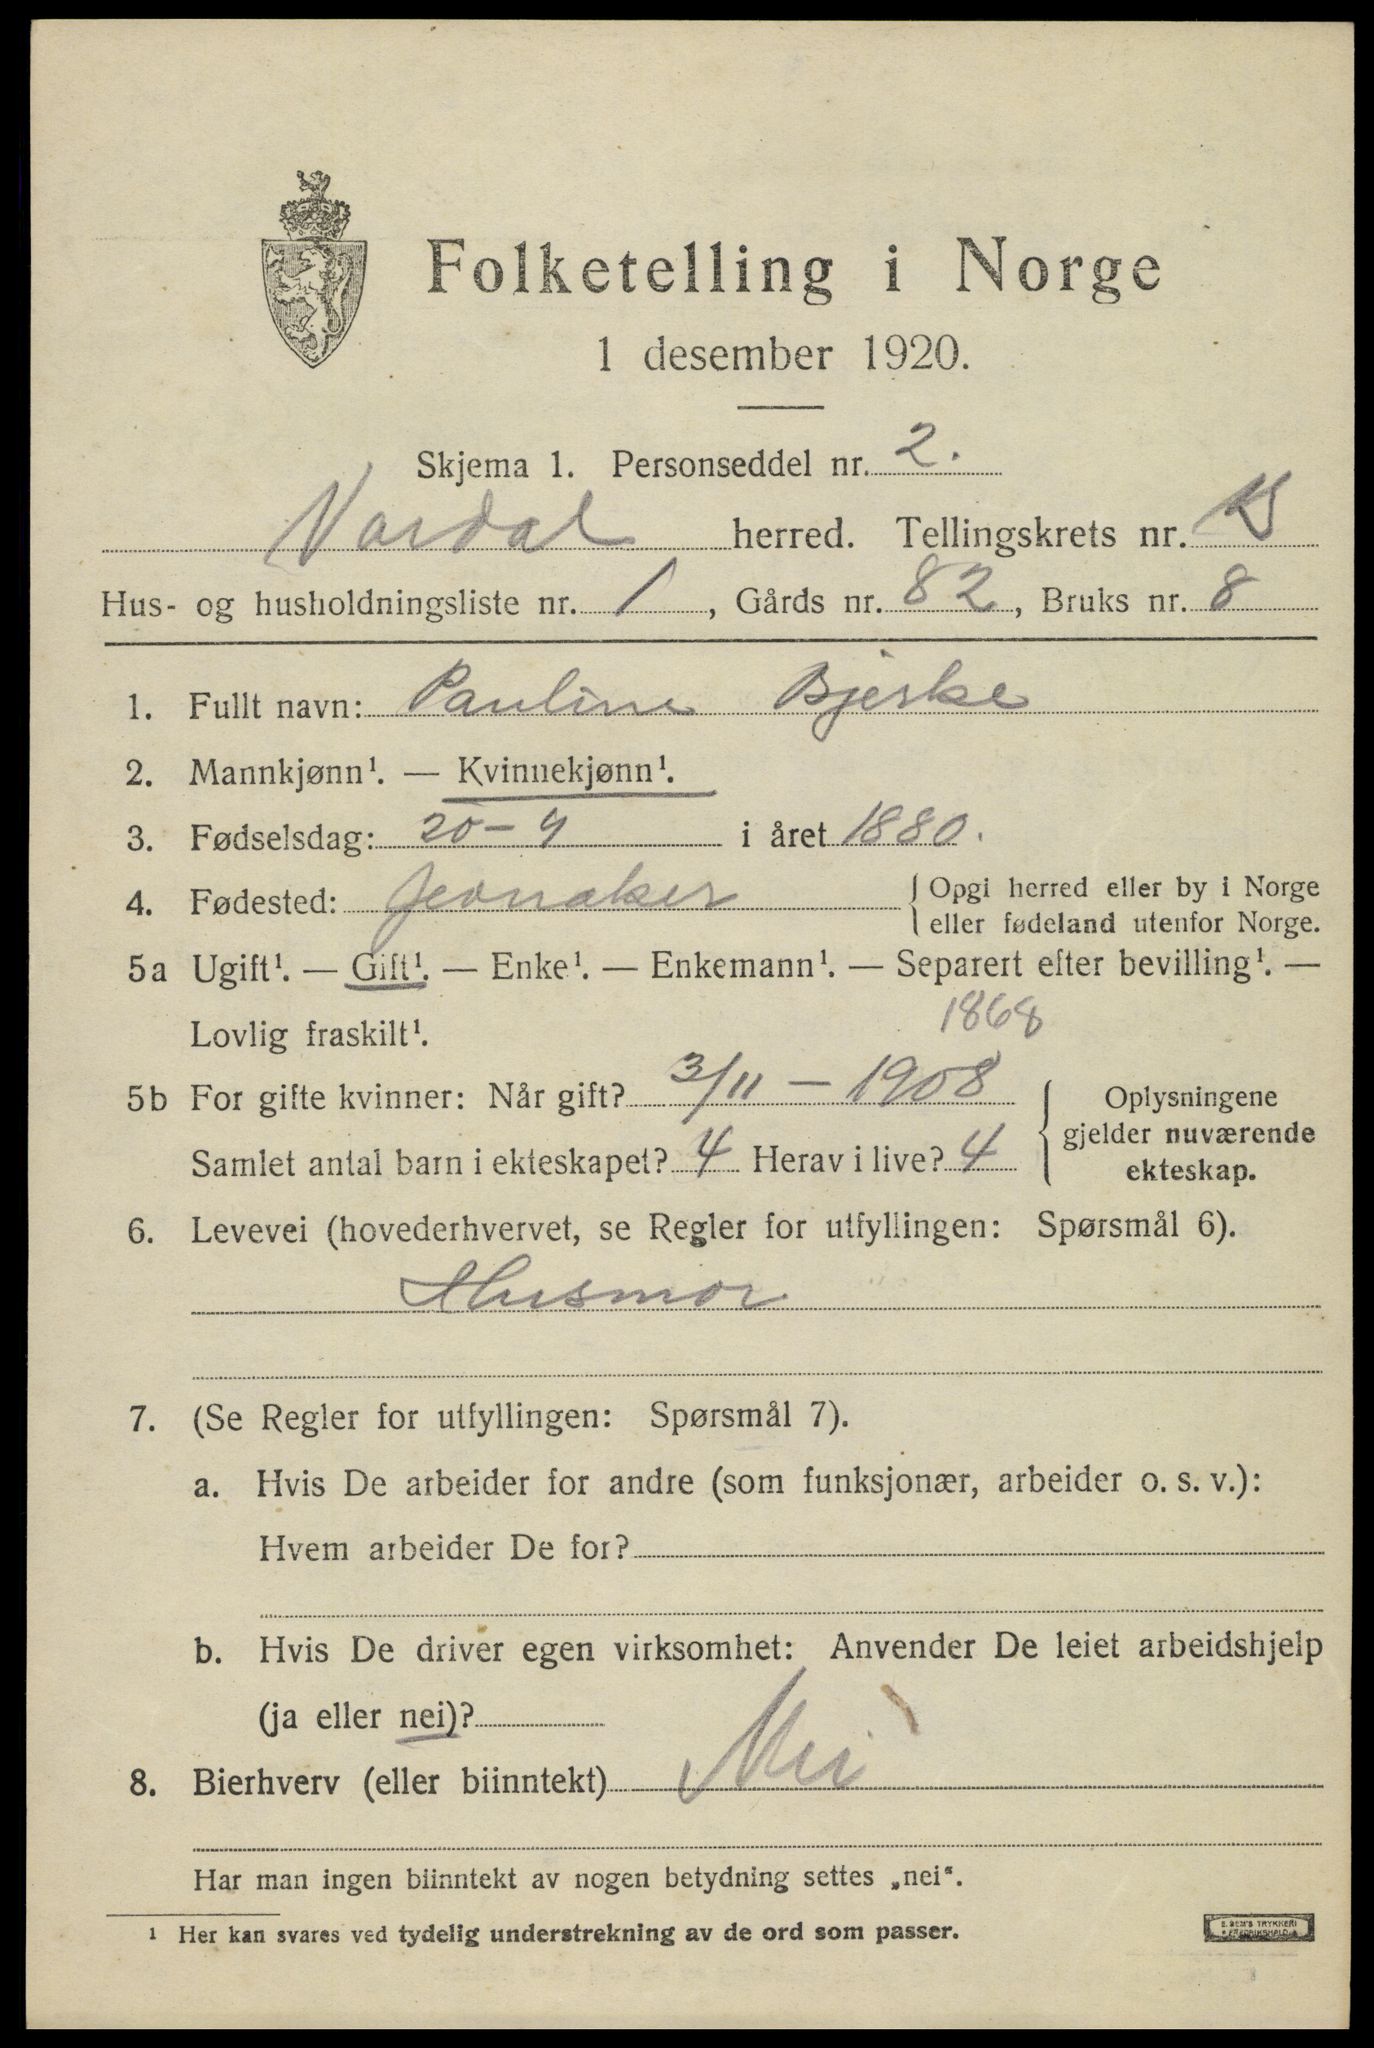 Folketelling i Norge
1 desember 1920.
Skjema 1. Personseddel nr. 2.
Vardal herred. Tellingskrets nr.
Hus- og husholdningsliste nr. 1, Gårds nr. 82, Bruks nr. 8
1. Fullt navn: Pauline Bjerke
2. Mannkjønn¹. — Kvinnekjønn¹.
3. Fødselsdag: 20-4 i året 1880.
4. Fødested: Jevnaker { Opgi herred eller by i Norge
eller fødeland utenfor Norge.
5a Ugift¹. — Gift¹. — Enke¹. — Enkemann¹. — Separert efter bevilling¹. —
Lovlig fraskilt¹.
1868
5b For gifte kvinner: Når gift? 3/11 — 1908
Samlet antal barn i ekteskapet? 4 Herav i live? 4
Oplysningene
gjelder nuværende
ekteskap.
6. Levevei (hovederhvervet, se Regler for utfyllingen: Spørsmål 6).
Husmor
7. (Se Regler for utfyllingen: Spørsmål 7).
a. Hvis De arbeider for andre (som funksjonær, arbeider o. s. v.):
Hvem arbeider De for?
b. Hvis De driver egen virksomhet: Anvender De leiet arbeidshjelp
(ja eller nei)?
8. Bierhverv (eller biinntekt) Nei
Har man ingen biinntekt av nogen betydning settes „nei“.
¹ Her kan svares ved tydelig understrekning av de ord som passer.
E. SEM'S TRYKKERI
FREDRIKSHALD